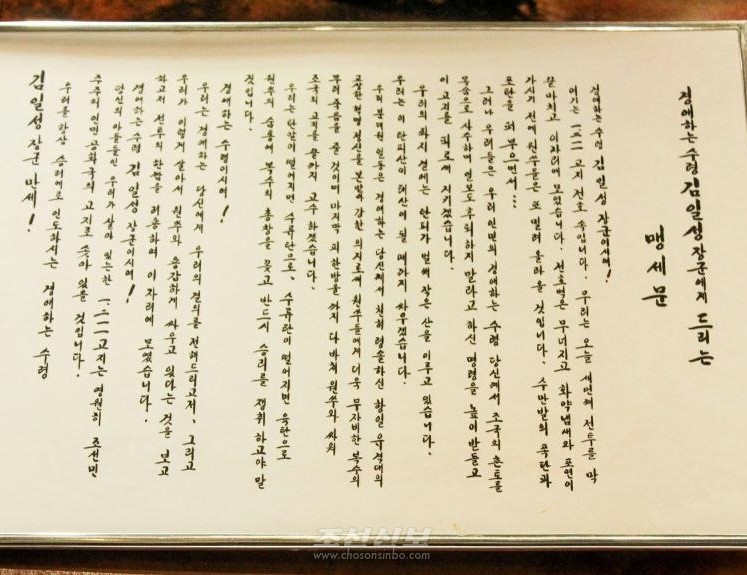 경애하는 수령 김일성 장군에게 드리는
맹세문
경애하는 수령 김일성 장군이시여!
여기는 一二一一 고지 전호 속입니다. 우리는 오늘 세번째 전투를 막
끝마치고 이자리에 모였습니다. 전호벽은 무너지고 화약냄새와 포연이
가시기 전에 원쑤놈들은 또 밀려 올라올 것입니다. 수만발의 폭탄과
포탄을 퍼 부으면서...
그러나 우리들은 우리 인민의 경애하는 수령 당신께서 조국의 촌토를
목숨으로 사수하며 일보도 후퇴하지 말라고 하신 명령을 높이 받들고
이 고지를 피로써 지키겠습니다.
우리의 화지 곁에는 탄피가 벌써 작은 산을 이루고 있습니다.
우리는 이 탄피산이 태산이 될 때까지 싸우겠습니다.
우리 분대원 일동은 경애하는 당신께서 친히 령솔하신 항일 유격대의
고상한 혁명 정신을 본받아 강한 의지로써 원쑤들에게 더욱 무자비한 복수의
무리 죽음을 줄 것이며 마지막 피 한방울 까지 다 바쳐 원쑤와 싸워
조국의 고지를 끝까지 고수 하겠습니다.
우리는 탄알이 떨어지면 수류탄으로, 수류탄이 떨어지면 육탄으로
원쑤의 숨통에 복수의 총창을 꽂고 반드시 승리를 쟁취 하고야 말
것입니다.
경애하는 수령이시여!
우리는 경애하는 당신에게 우리의 결의를 전해드리고저, 그리고
우리가 이렇게 살아서 원쑤와 용감하게 싸우고 있다는 것을 보고
하고저 전투의 한짬을 리용하여 이 자리에 모였습니다.
경애하는 수령 김일성 장군이시여!
당신의 아들들인 우리가 살아 있는한 一二一一고지는 영원히 조선민
주주의 인민 공화국의 고지로 솟아 있을 것입니다.
우리를 항상 승리에로 인도하시는 경애하는 수령
김일성 장군 만세!
조선신보
www.chosonsinbo.com